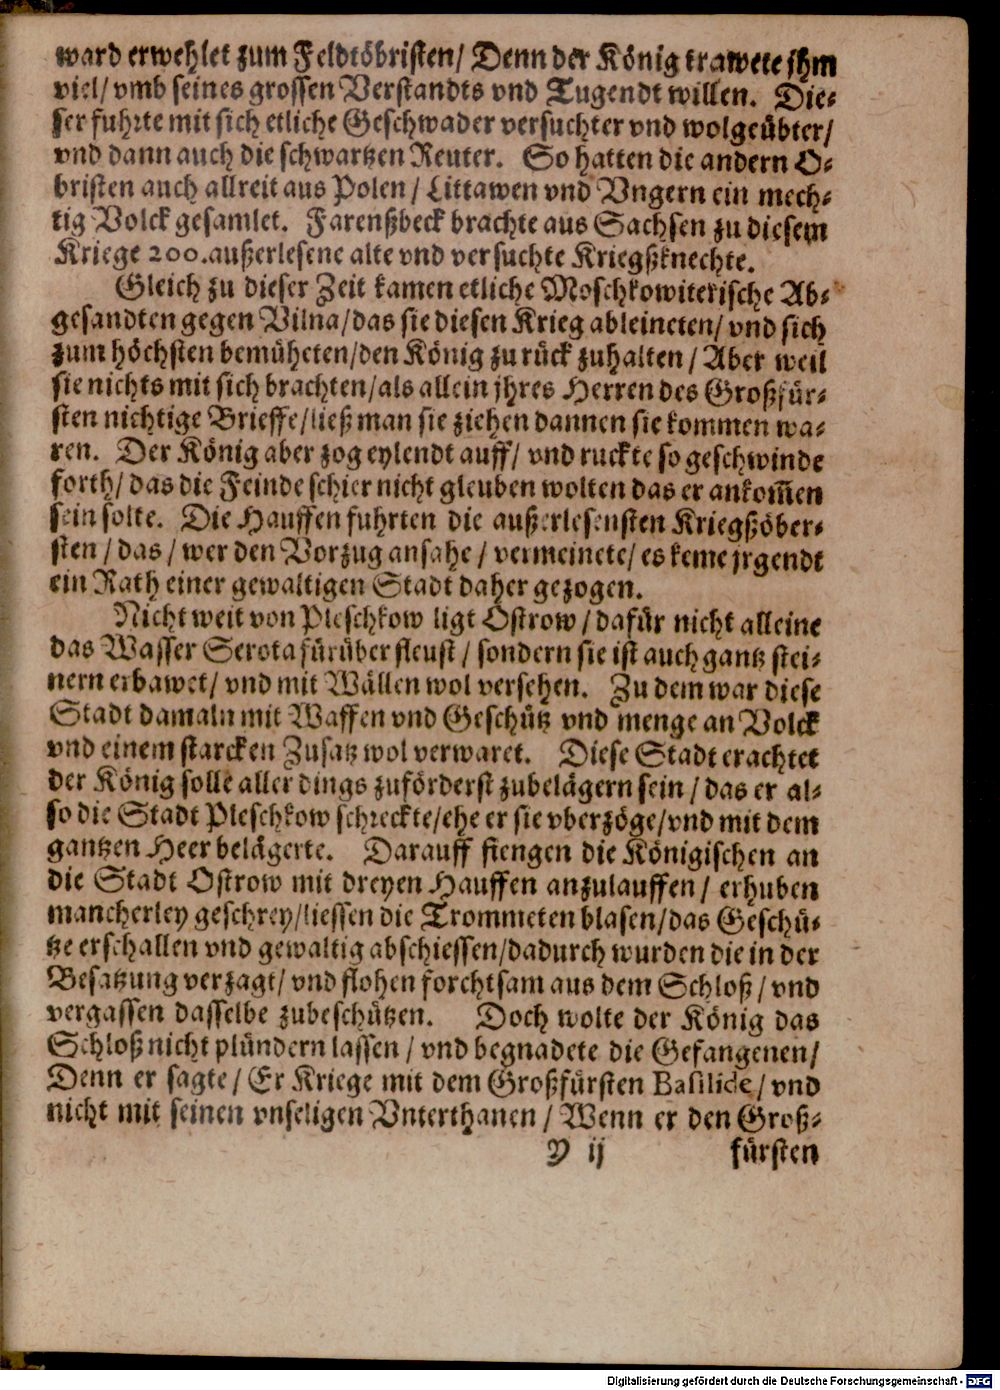 ward erwehlet zum Feldtöbristen/ Denn der König trawete jhm
viel/ vmb seines grossen Verstandts vnd Tugendt willen. Die-
ser fuhrte mit sich etliche Geschwader versuchter vnd wolgeübter/
vnd dann auch die schwartzen Reuter. So hatten die andern O-
bristen auch allreit aus Polen/ Littawen vnd Vngern ein mech-
tig Volck gesamlet. Farenßbeck brachte aus Sachsen zu diesem
Kriege 200. außerlesene alte vnd versuchte Kriegßknechte.
Gleich zu dieser Zeit kamen etliche Moschkowiterische Ab-
gesandten gegen Vilna/ das sie diesen Krieg ableineten/ vnd sich
zum höchsten bemüheten/ den König zu rück zuhalten/ Aber weil
sie nichts mit sich brachten/ als allein jhres Herren des Großfür-
sten nichtige Brieffe/ ließ man sie ziehen dannen sie kommen wa-
ren. Der König aber zog eylendt auff/ vnd ruckte so geschwinde
forth/ das die Feinde schier nicht gleuben wolten das er ankom̄en
sein solte. Die Hauffen fuhrten die außerlesensten Kriegßöber-
sten/ das/ wer den Vorzug ansahe/ vermeinete/ es keme jrgendt
ein Rath einer gewaltigen Stadt daher gezogen.
Nicht weit von Pleschkow ligt Ostrow/ dafür nicht alleine
das Wasser Serota fürüber fleust/ sondern sie ist auch gantz stei-
nern erbawet/ vnd mit Wällen wol versehen. Zu dem war diese
Stadt damaln mit Waffen vnd Geschütz vnd menge an Volck
vnd einem starcken Zusatz wol verwaret. Diese Stadt erachtet
der König solle aller dings zuförderst zubelägern sein/ das er al-
so die Stadt Pleschkow schreckte/ ehe er sie vberzöge/ vnd mit dem
gantzen Heer belägerte. Darauff fiengen die Königischen an
die Stadt Ostrow mit dreyen Hauffen anzulauffen/ erhuben
mancherley geschrey/ liessen die Trommeten blasen/ das Geschü-
tze erschallen vnd gewaltig abschiessen/ dadurch wurden die in der
Besatzung verzagt/ vnd flohen forchtsam aus dem Schloß/ vnd
vergassen dasselbe zubeschützen. Doch wolte der König das
Schloß nicht plündern lassen/ vnd begnadete die Gefangenen/
Denn er sagte/ Er Kriege mit dem Großfürsten Basilide/ vnd
nicht mit seinen vnseligen Vnterthanen/ Wenn er den Groß-
Y ij fürsten
Digitalisierung gefördert durch die Deutsche Forschungsgemeinschaft - DFG